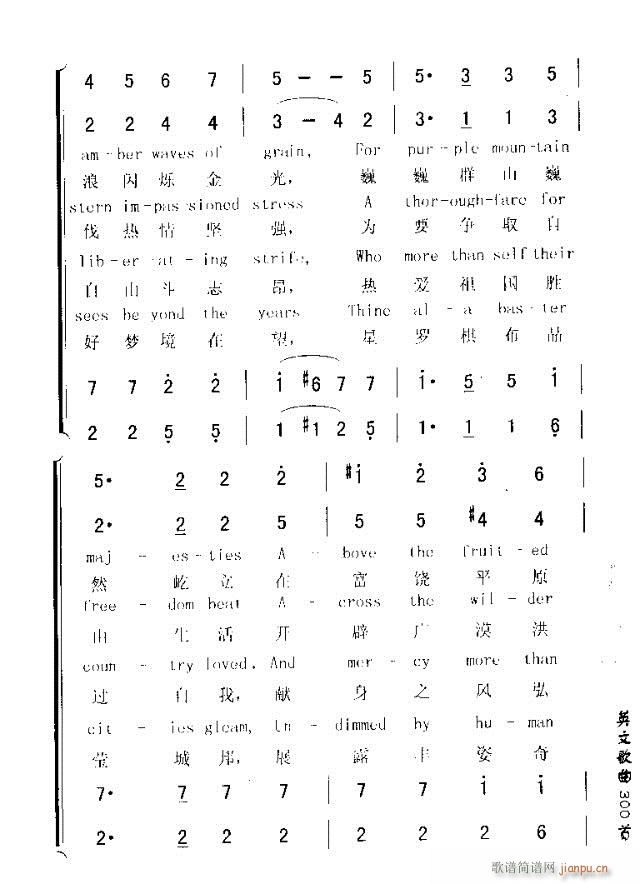 4 5 6 7 | 5 - - 5 | 5· 3 3 5 |
2 2 4 4 | 3 - 4 2 | 3· 1 1 3 |
am-ber waves of grain, For pur-ple moun-tain
浪闪烁金光, 巍巍群山巍
stern im-pas-sioned stress A thor-ough-fare for
伐热情坚强, 为要争取自
lib-er-at-ing strife, Who more than self their
自由斗志昂, 热爱祖国胜
sees be yond the years Thine al-a bas-ter
好梦境在望, 星罗棋布晶
7 7 2 2 | i #6 7 7 | i· 5 5 i |
2 2 5 5 | 1 #1 2 5 | 1· 1 1 6 |
5· 2 2 2 | #i 2 3 6 |
2· 2 2 5 | 5 5 #4 4 |
maj-es-ties A-bove the fruit-ed
然屹立在富饶平原
free-dom beat A-cross the wil-der
由生活开辟广漠洪
coun-try loved, And mer-cy more than
过自我,献身之风弘
cit-ies gleam, Un-dimmed by hu-man
莹城邦,展露丰姿奇
7· 7 7 7 | 7 7 i i |
2· 2 2 2 | 2 2 2 6 |
英文歌曲300首
歌谱简谱网 jianpu.cn